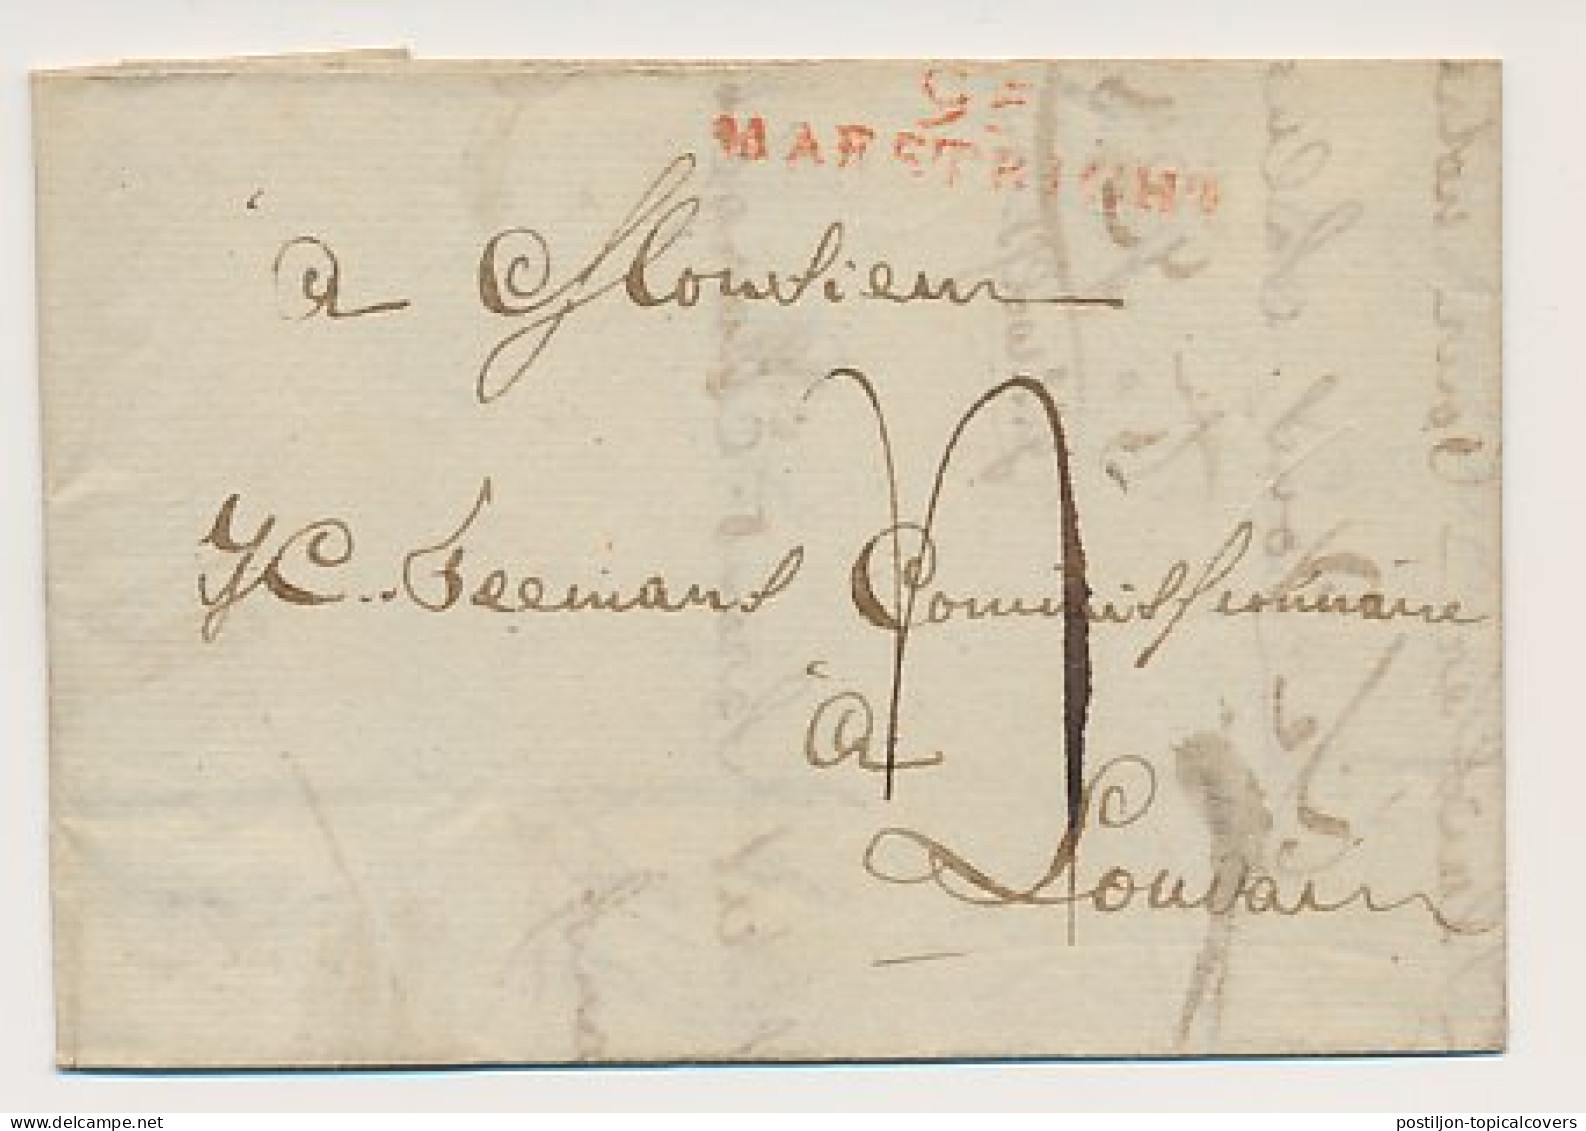 94
MAESTRICHT
à Monsieur
J C.. Feemans Commissionnaire
à
Louvain
delcampe.net
postiljon-topicalcovers